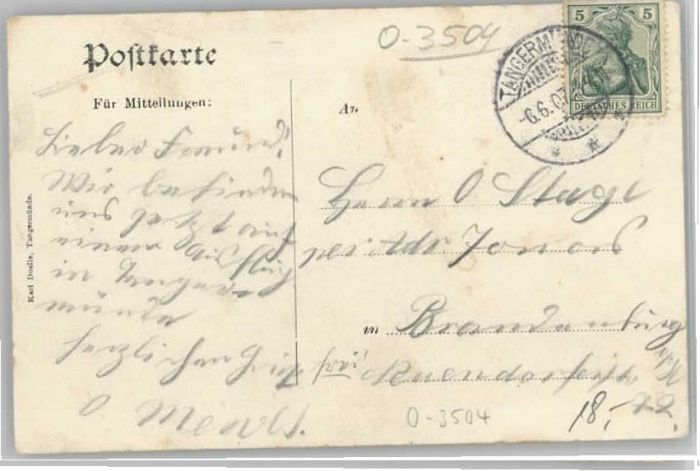 Postkarte
O-3504
5 5
TANGERMÜNDE
-6.6.07
DEUTSCHES REICH
Für Mitteilungen:
An
Lieber Freund!
Wir befinden
uns jetzt auf
einem Ausflug
in Tanger-
münde
herzlichen Gruß
O
Herrn O Stage
per. Adr. Jonas
in Brandenburg
Karl Doelle, Tangermünde.
O-3504
18,-